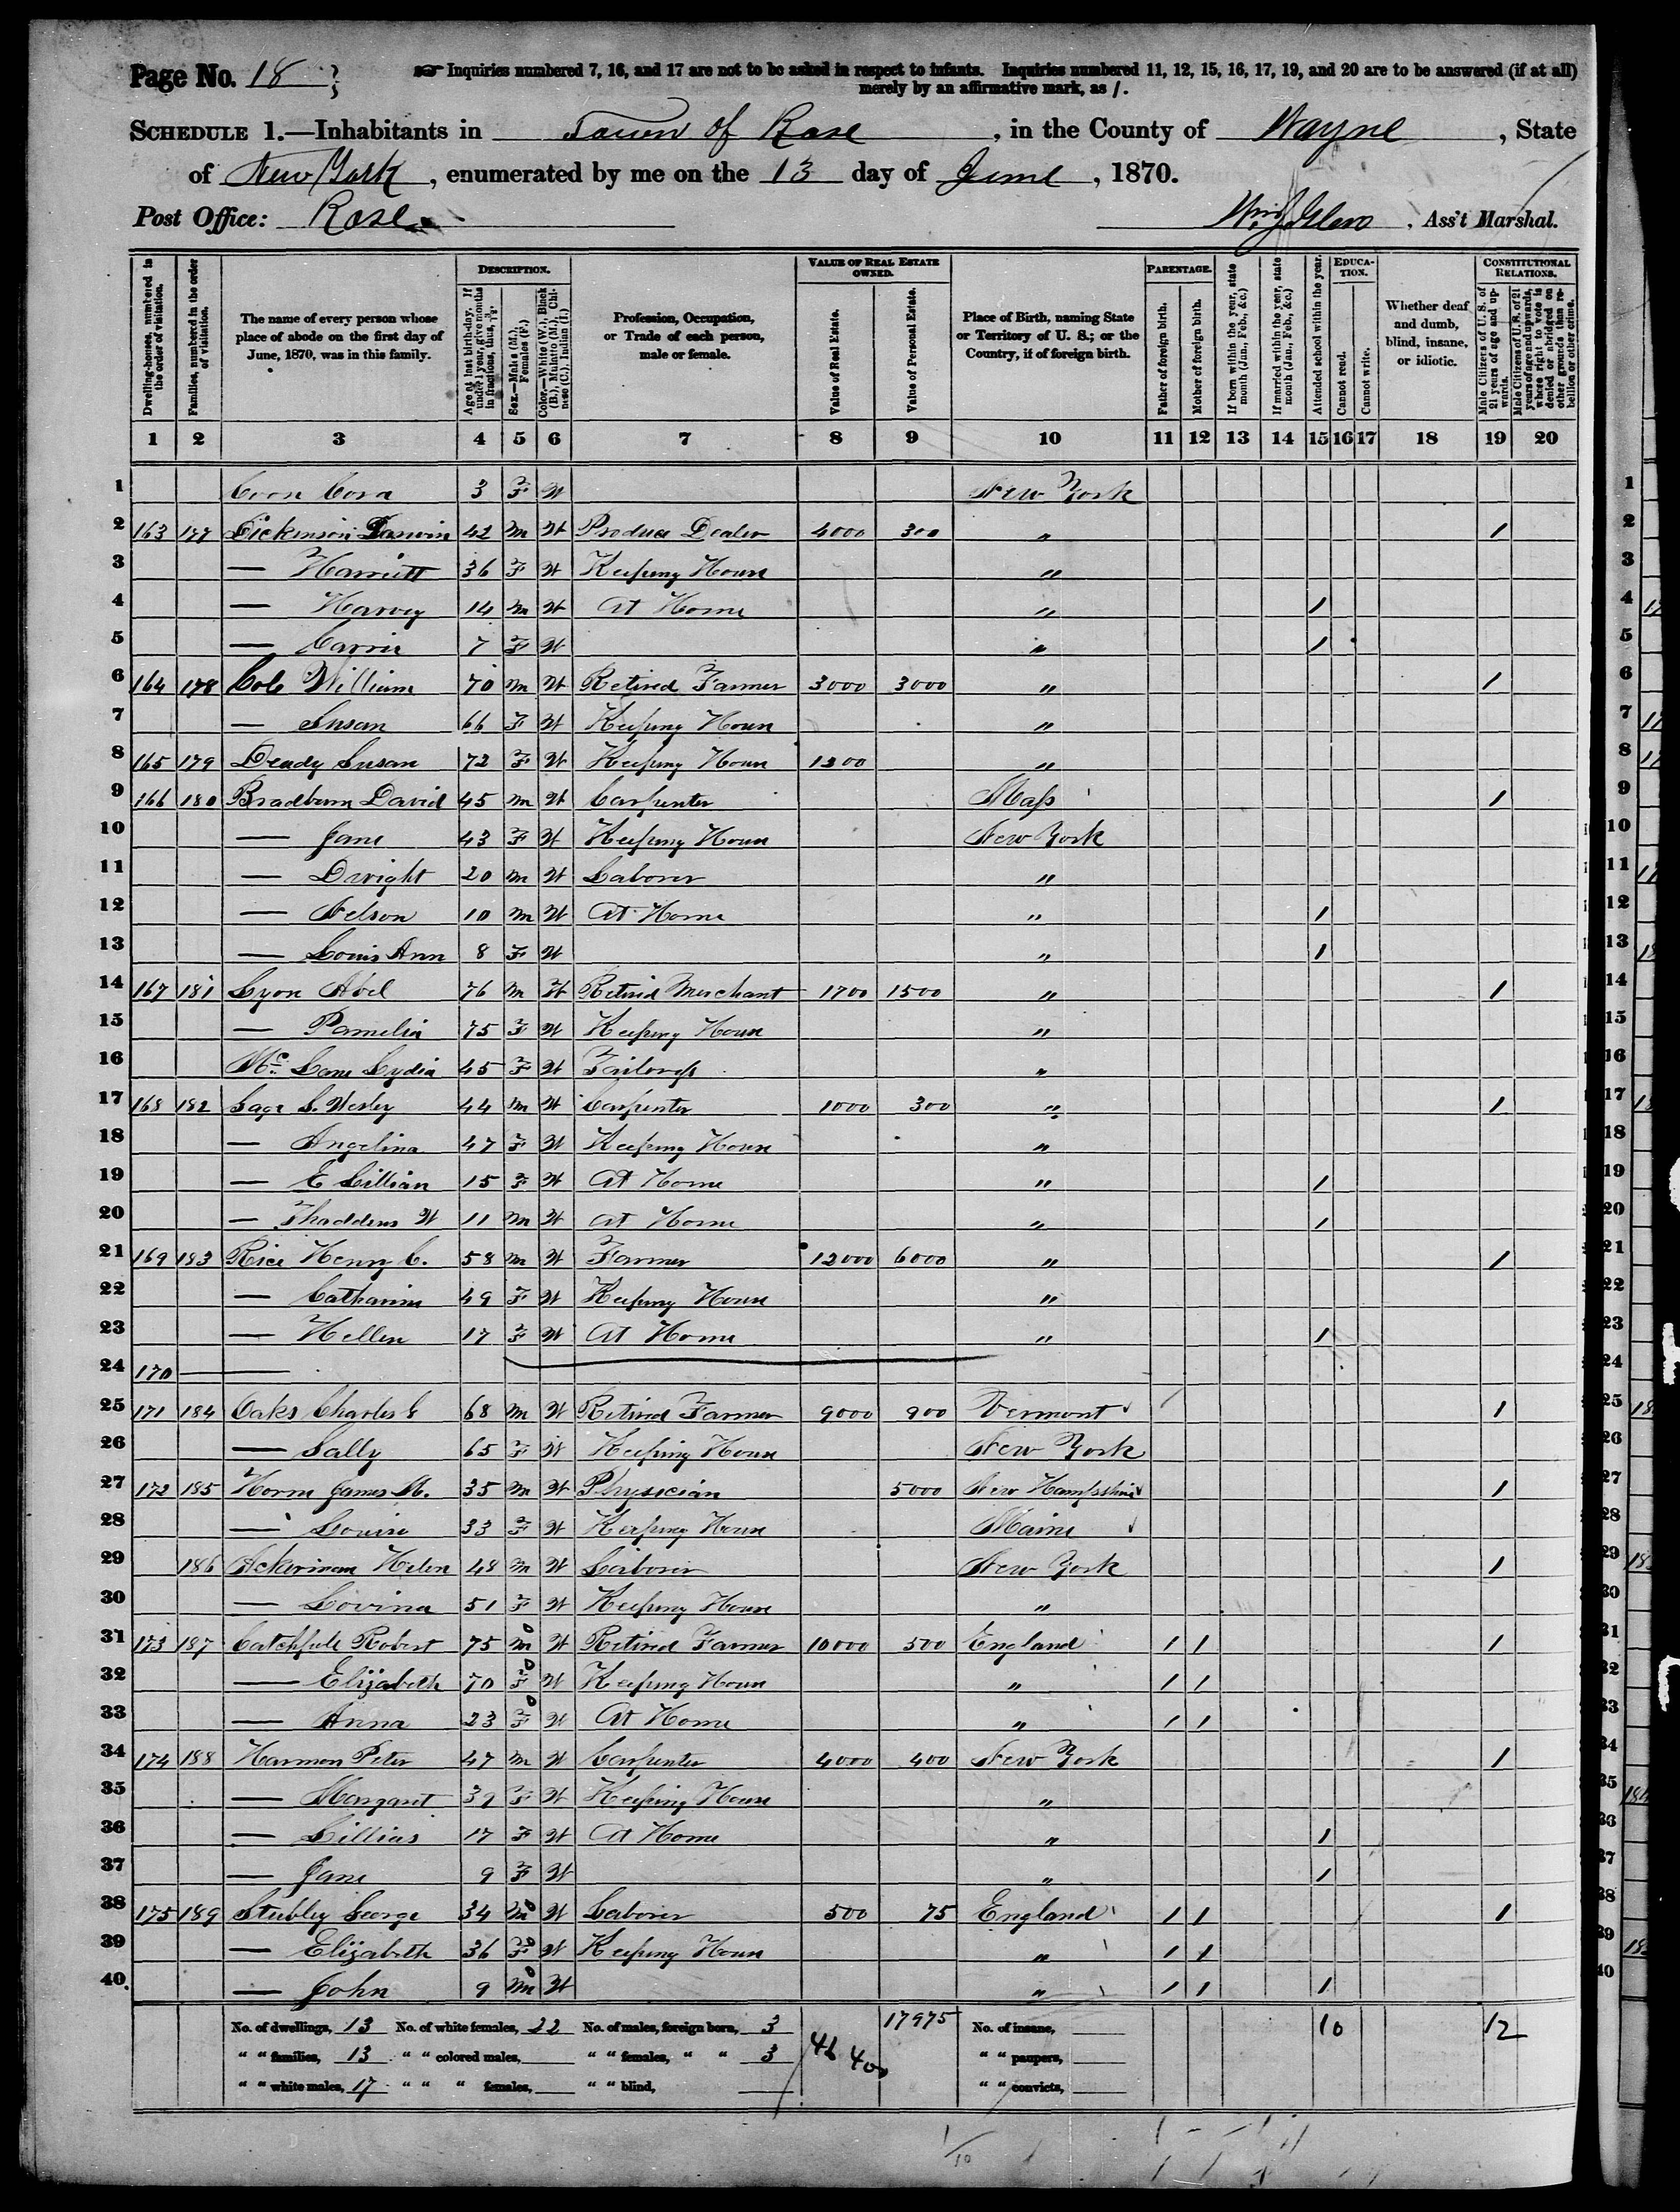 Page No. 18
Inquiries numbered 7, 16, and 17 are not to be asked in respect to infants. Inquiries numbered 11, 12, 15, 16, 17, 19, and 20 are to be answered (if at all)
merely by an affirmative mark, as /.
SCHEDULE 1.—Inhabitants in Town of Rose, in the County of Wayne, State
of New York, enumerated by me on the 13 day of June, 1870.
Post Office: Rose Ass't Marshal.
Dwelling-houses, numbered in the order of visitation.
Families, numbered in the order of visitation.
The name of every person whose place of abode on the first day of June, 1870, was in this family.
DESCRIPTION.
Age at last birth-day. If under 1 year, give months in fractions, thus, 3/12.
Sex.—Males (M.), Females (F.)
Color.—White (W.), Black (B.), Mulatto (M.), Chinese (C.), Indian (I.)
Profession, Occupation, or Trade of each person, male or female.
VALUE OF REAL ESTATE OWNED.
Value of Real Estate.
Value of Personal Estate.
Place of Birth, naming State or Territory of U. S.; or the Country, if of foreign birth.
PARENTAGE.
Father of foreign birth.
Mother of foreign birth.
If born within the year, state month (Jan., Feb., &c.)
If married within the year, state month (Jan., Feb., &c.)
Attended school within the year.
EDUCATION.
Cannot read.
Cannot write.
Whether deaf and dumb, blind, insane, or idiotic.
CONSTITUTIONAL RELATIONS.
Male Citizens of U. S. of 21 years of age and upwards.
Male Citizens of U. S. of 21 years of age and upwards, whose right to vote is denied or abridged on other grounds than rebellion or other crime.
1 2 3 4 5 6 7 8 9 10 11 12 13 14 15 16 17 18 19 20
1 Coon Cora 3 F W New York 1
2 163 177 Dickinson Darwin 42 M W Produce Dealer 4000 300 " / 2
3 — Harriett 36 F W Keeping House " 3
4 — Harvey 14 M W At Home " / 4
5 — Carrie 7 F W " / 5
6 164 178 Cole William 70 M W Retired Farmer 3000 3000 " / 6
7 — Susan 66 F W Keeping House " 7
8 165 179 Deady Susan 72 F W Keeping House 1200 " 8
9 166 180 Bradburn David 45 M W Carpenter Mass / 9
10 — Jane 43 F W Keeping House New York 10
11 — Dwight 20 M W Laborer " 11
12 — Nelson 10 M W At Home " / 12
13 — Louis Ann 8 F W " / 13
14 167 181 Lyon Abel 76 M W Retired Merchant 1700 1500 " / 14
15 — Pamelia 75 F W Keeping House " 15
16 Mc Lane Lydia 45 F W Tailoress " 16
17 168 182 Sage S. Wesley 44 M W Carpenter 1000 300 " / 17
18 — Angelina 47 F W Keeping House " 18
19 — E Lillian 15 F W At Home " / 19
20 — Thaddeus W 11 M W At Home " / 20
21 169 183 Rice Henry C. 58 M W Farmer 12000 6000 " / 21
22 — Catharine 49 F W Keeping House " 22
23 — Hellen 17 F W At Home " / 23
24 170 — 24
25 171 184 Oaks Charles G 68 M W Retired Farmer 9000 900 Vermont / 25
26 — Sally 65 F W Keeping House New York 26
27 172 185 Horne James M. 35 M W Physician 5000 New Hampshire / 27
28 — Louise 33 F W Keeping House Maine 28
29 186 Ackerman 48 M W Laborer New York / 29
30 — Lovina 51 F W Keeping House " 30
31 173 187 Catchpole Robert 75 M W Retired Farmer 10000 500 England / / / 31
32 — Elizabeth 70 F W Keeping House " / / 32
33 — Anna 23 F W At Home " / / 33
34 174 188 Harmon Peter 47 M W Carpenter 4000 400 New York / 34
35 — Margaret 39 F W Keeping House " 35
36 — Lillias 17 F W At Home " / 36
37 — Jane 9 F W " / 37
38 175 189 Stubley George 34 M W Laborer 500 75 England / / / 38
39 — Elizabeth 36 F W Keeping House " / / 39
40. — John 9 M W " / / / 40
No. of dwellings, 13 No. of white females, 22 No. of males, foreign born, 3 46 400 17975 No. of insane, 10 12
" " families, 13 " " colored males, " " females, " " 3 " " paupers,
" " white males, 17 " " " females, " " blind, " " convicts,